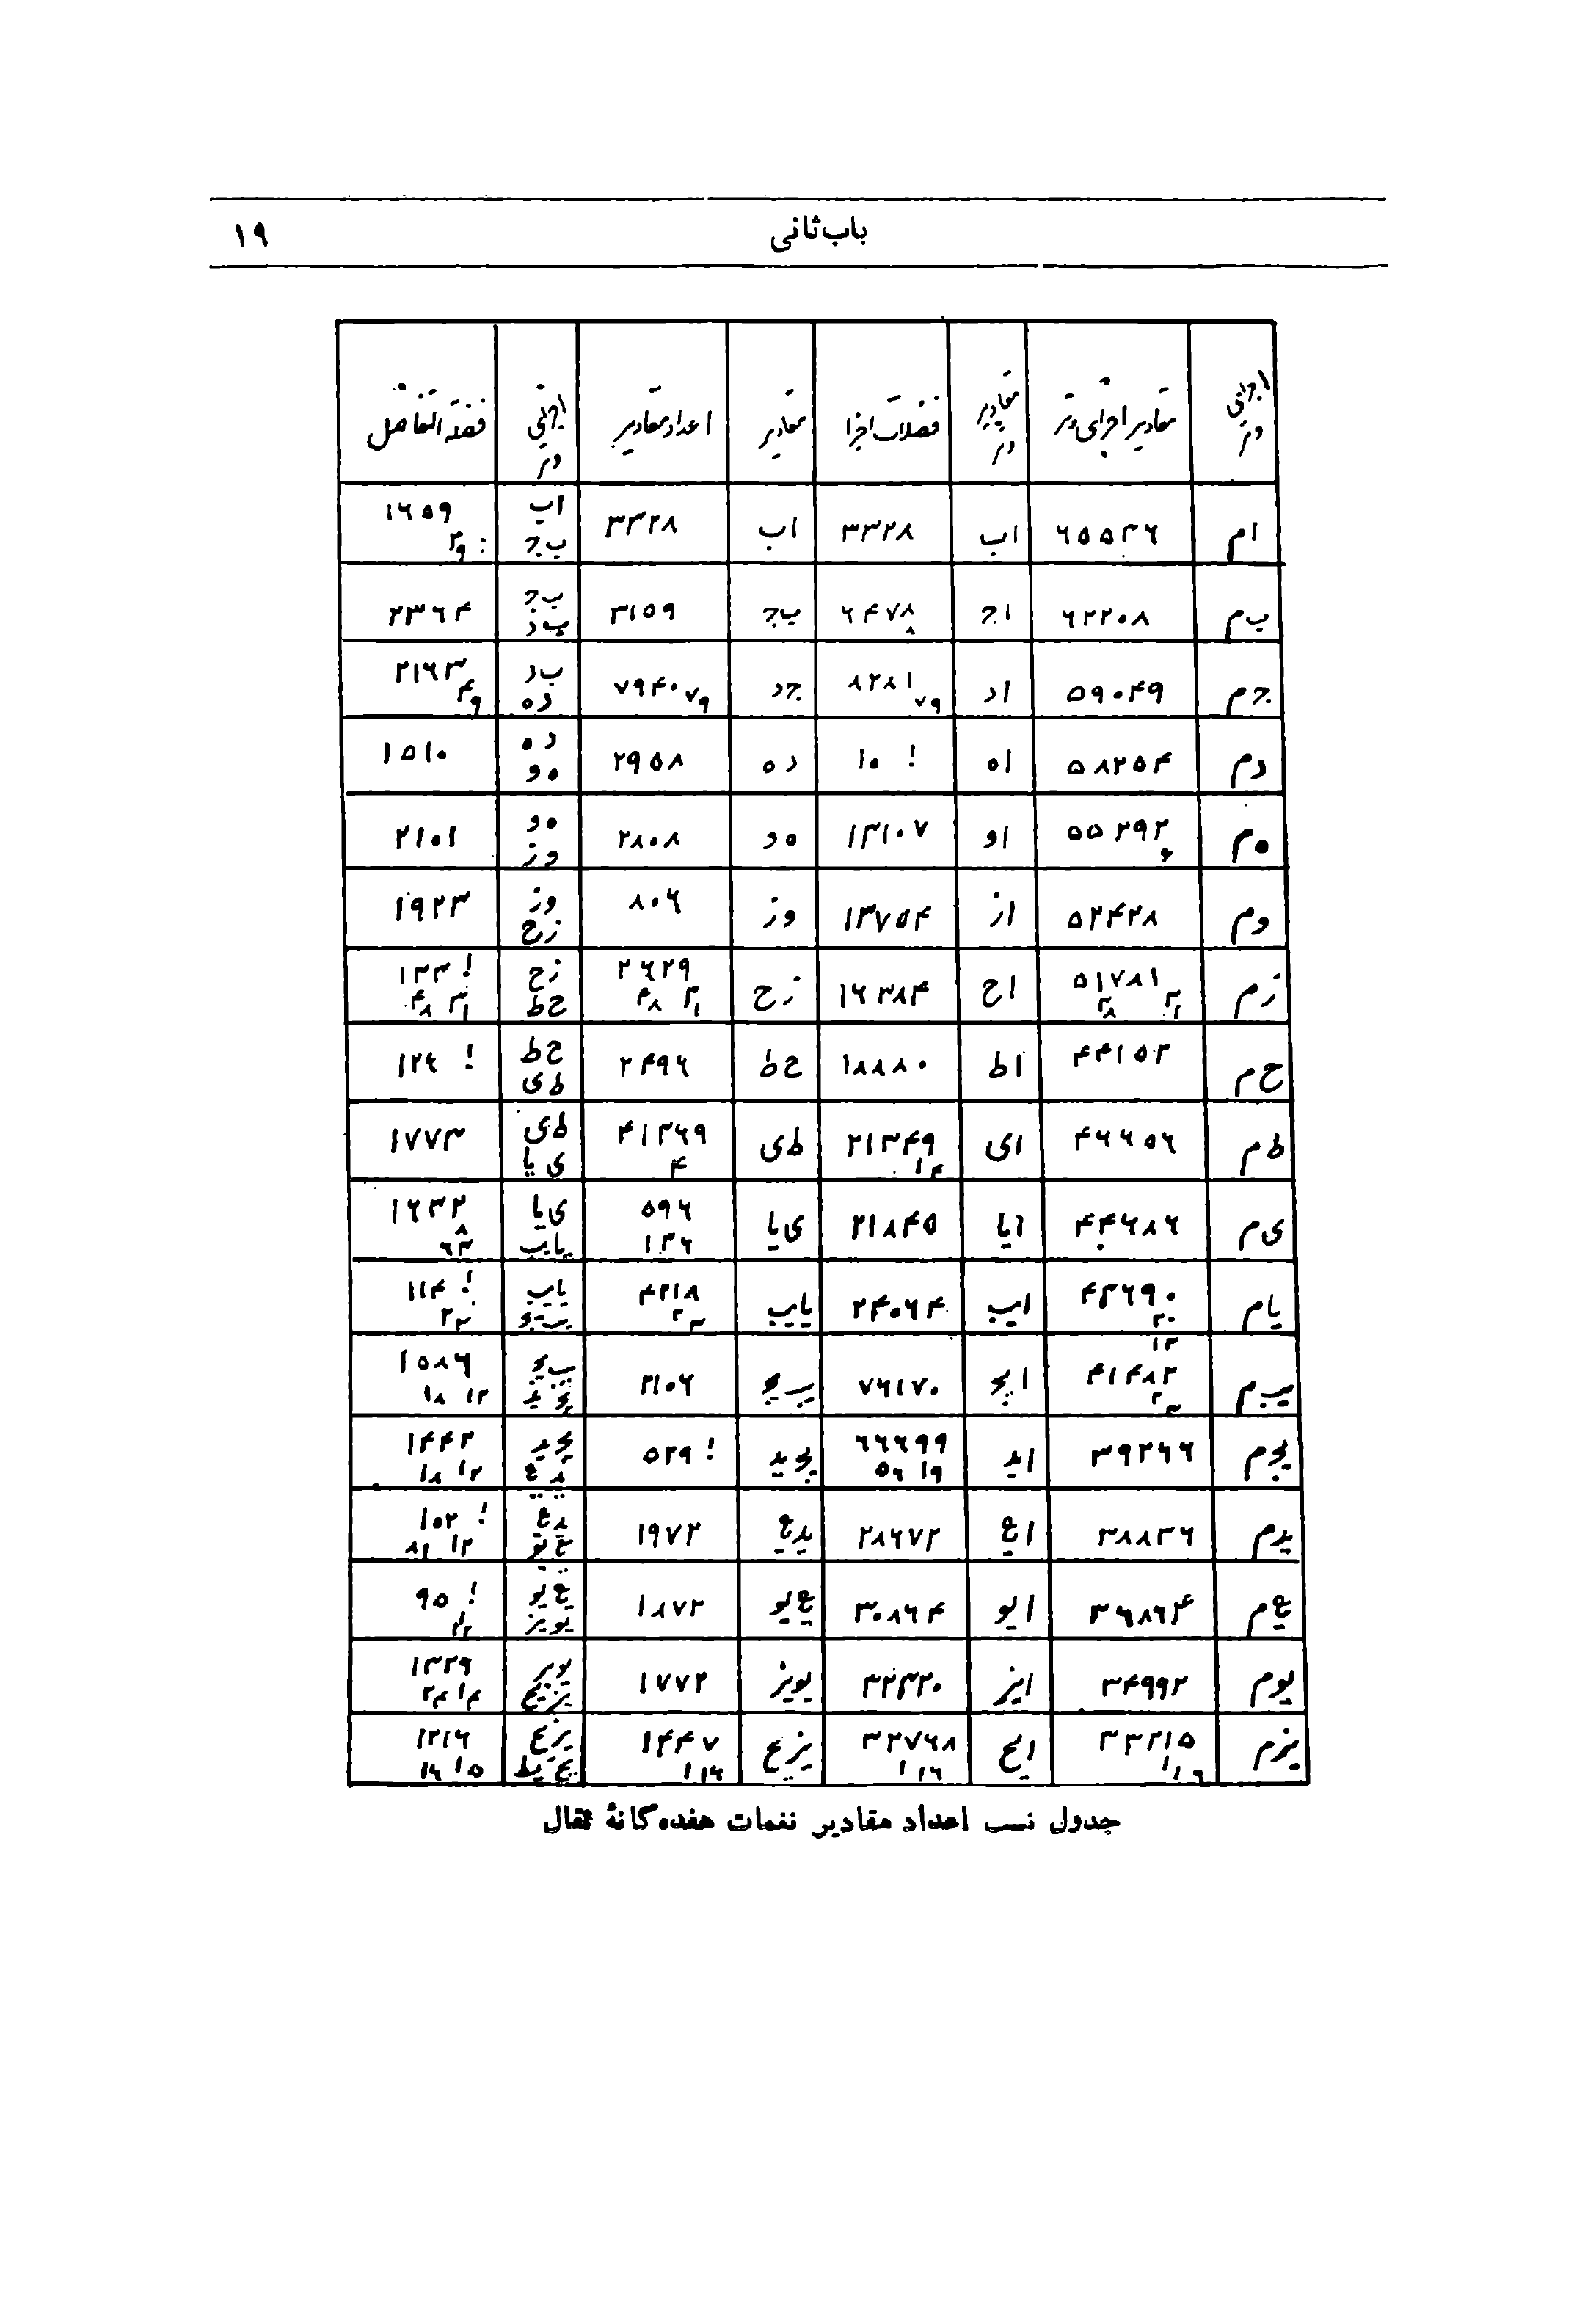 باب ثانی
۱۹
اجزای وتر مقادیر اجزای وتر مقادیر وتر فضلات اجزا مقادیر اعداد مقادیر اجزای وتر فضلة التفاضل
ام ۶۵۵۳۶ اب ۳۳۲۸ اب ۳۳۲۸ اب ب‌ج ۱۶۵۹
ب‌م ۶۲۲۰۸ اج ۶۴۷۸ ۸ ب‌ج ۳۱۵۹ ب‌ج ب‌د ۲۳۶۴
ج‌م ۵۹۰۴۹ اد ۸۲۸۱ ۷۹ ج‌د ۷۹۴۰ ۷۹ ب‌د ده ۲۱۶۳ ۴۹
دم ۵۸۲۵۴ اه ! ۱۰ ده ۲۹۵۸ ده ه‌و ۱۵۱۰
ه‌م ۵۵۲۹۲ ۶ او ۱۳۱۰۷ ه‌و ۲۸۰۸ ه‌و وز ۲۱۰۱
وم ۵۲۴۲۸ از ۱۳۷۵۴ وز ۸۰۶ وز زح ۱۹۲۳
زم ۵۱۷۸۱ ۳۱ ۳۸ اح ۱۶۳۸۴ زح ۲۶۲۹ ۳۱ ۴۸ زح ح‌ط ! ۱۳۳ ۳۱ ۴۸
ح‌م ۴۴۱۵۲ اط ۱۸۸۸۰ ح‌ط ۲۴۹۶ ح‌ط ط‌ی ! ۱۲۴
ط‌م ۴۶۶۵۶ ای ۲۱۳۴۹ ۱۴ ط‌ی ۴۱۳۶۹ ۴ ط‌ی ی‌یا ۱۷۷۳
ی‌م ۴۴۶۸۶ ایا ۲۱۸۴۵ ی‌یا ۵۹۶ ۱۳۶ ی‌یا یایب ۱۶۳۲ ۸ ۶۳
یام ۴۳۶۹۰ ۲۰ ایب ۲۴۰۶۴ یایب ۴۲۱۸ ۲۳ یایب یب‌یج ! ۱۱۴ ۲۳
یب‌م ۱۳ ۴۱۴۸۲ ۲۳ ایج ۷۶۱۷۰ یب‌یج ۲۱۰۶ یب‌یج یج‌ید ۱۵۸۶ ۱۲ ۱۸
یج‌م ۳۹۲۶۶ اید ۶۶۶۹۹ ۱۹ ۵۶ یج‌ید ! ۵۲۹ یج‌ید یدیه ۱۴۴۲ ۱۲ ۱۸
یدم ۳۸۸۳۶ ایه ۲۸۶۷۲ یدیه ۱۹۷۲ یدیه یه‌یو ! ۱۰۲ ۱۲ ۸۱
یه‌م ۳۶۸۶۴ ایو ۳۰۸۶۴ یه‌یو ۱۸۷۲ یه‌یو یویز ! ۹۵ ۱۲
یوم ۳۴۹۹۲ ایز ۳۲۳۲۰ یویز ۱۷۷۲ یویز یزیح ۱۳۲۹ ۱۴ ۲۴
یزم ۳۳۲۱۵ ۱۱۶ ایح ۳۲۷۶۸ ۱۱۶ یزیح ۱۴۴۷ ۱۱۶ یزیح یح‌یط ۱۲۱۶ ۱۵ ۱۶
جدول نسب اعداد مقادیر نغمات هفده‌گانهٔ تمقال